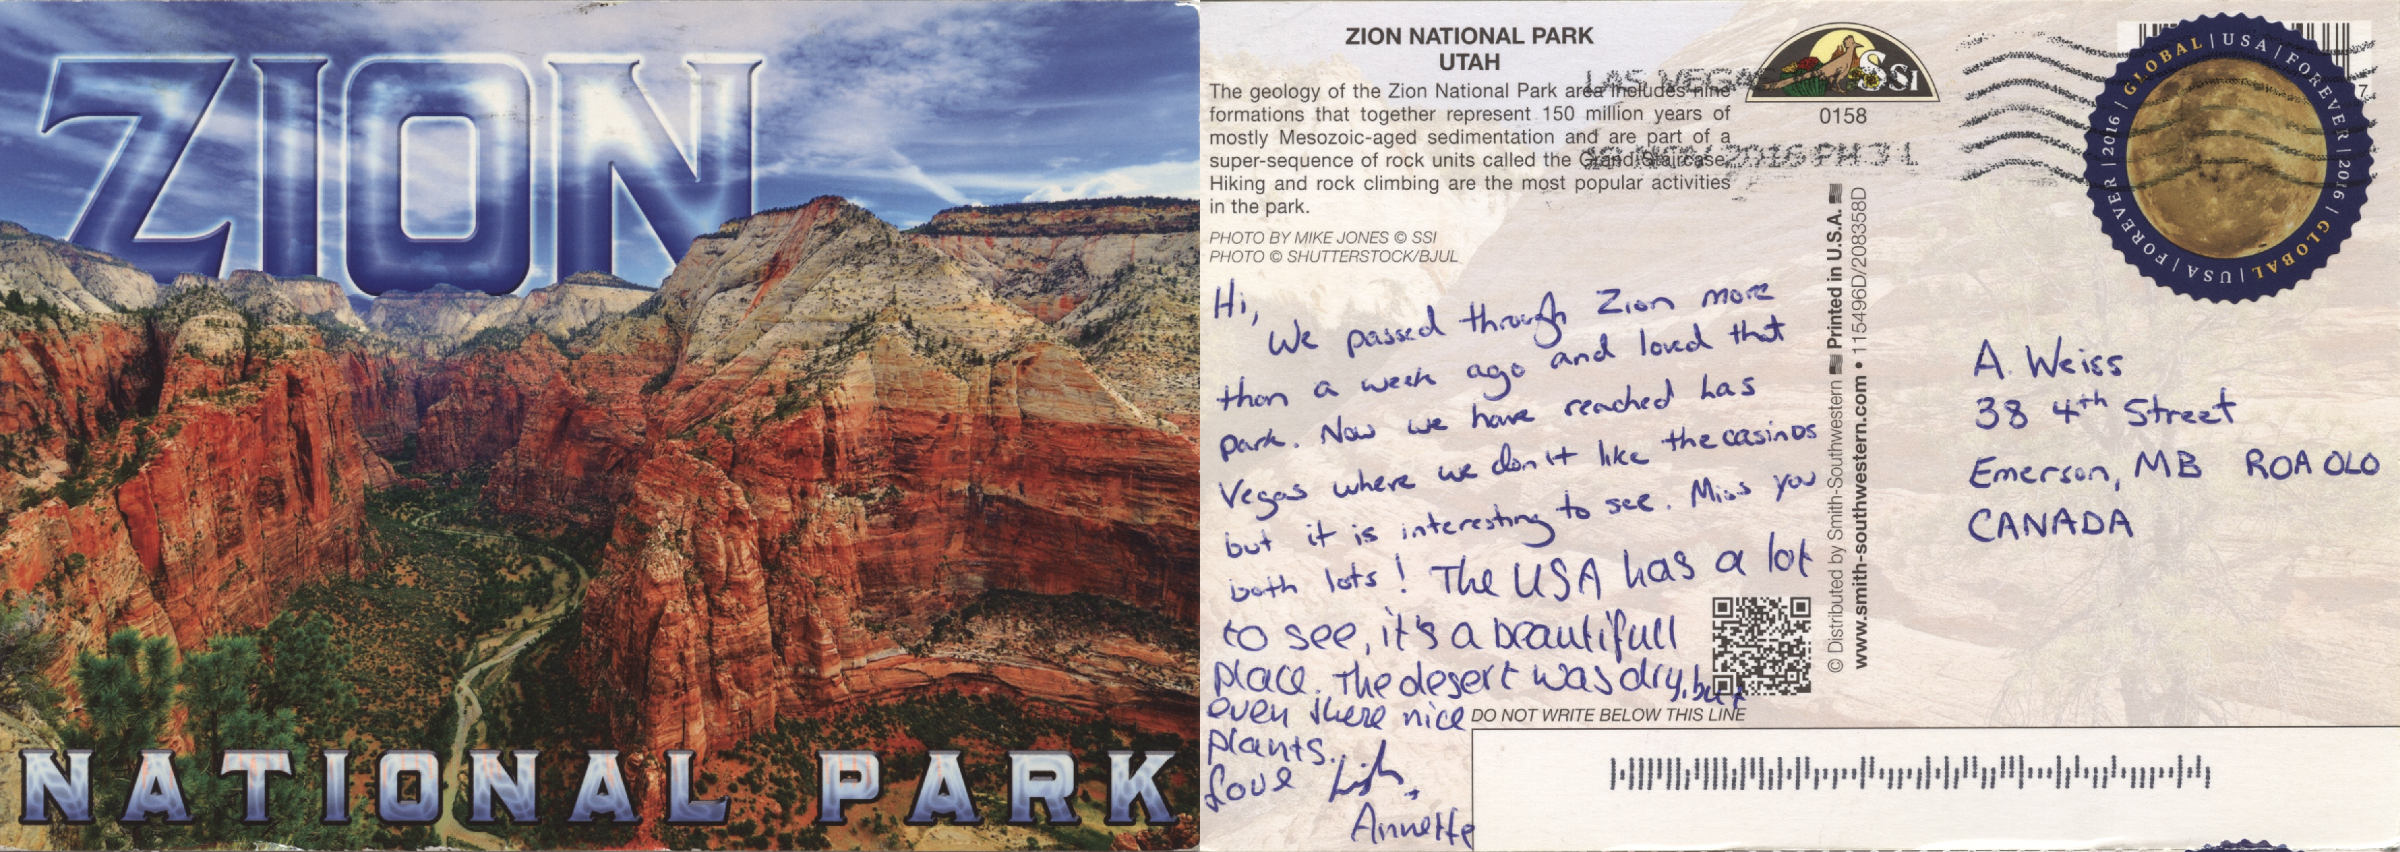 ZION
NATIONAL PARK
ZION NATIONAL PARK
UTAH
The geology of the Zion National Park area includes nine
formations that together represent 150 million years of
mostly Mesozoic-aged sedimentation and are part of a
super-sequence of rock units called the Grand Staircase.
Hiking and rock climbing are the most popular activities
in the park.
PHOTO BY MIKE JONES © SSI
PHOTO © SHUTTERSTOCK/BJUL
SSI
0158
LAS VEGAS
2016 PM 3 L
GLOBAL | USA | FOREVER | 2016 | GLOBAL | USA | FOREVER | 2016 |
7
Hi,
We passed through Zion more
than a week ago and loved that
park. Now we have reached Las
Vegas where we don't like the casinos
but it is interesting to see. Miss you
both lots! The USA has a lot
to see, it's a beautifull
place. The desert was dry, but
even there nice
plants.
Love
Annette
© Distributed by Smith-Southwestern Printed in U.S.A.
www.smith-southwestern.com • 115496D/208358D
A. Weiss
38 4th Street
Emerson, MB R0A 0L0
CANADA
DO NOT WRITE BELOW THIS LINE